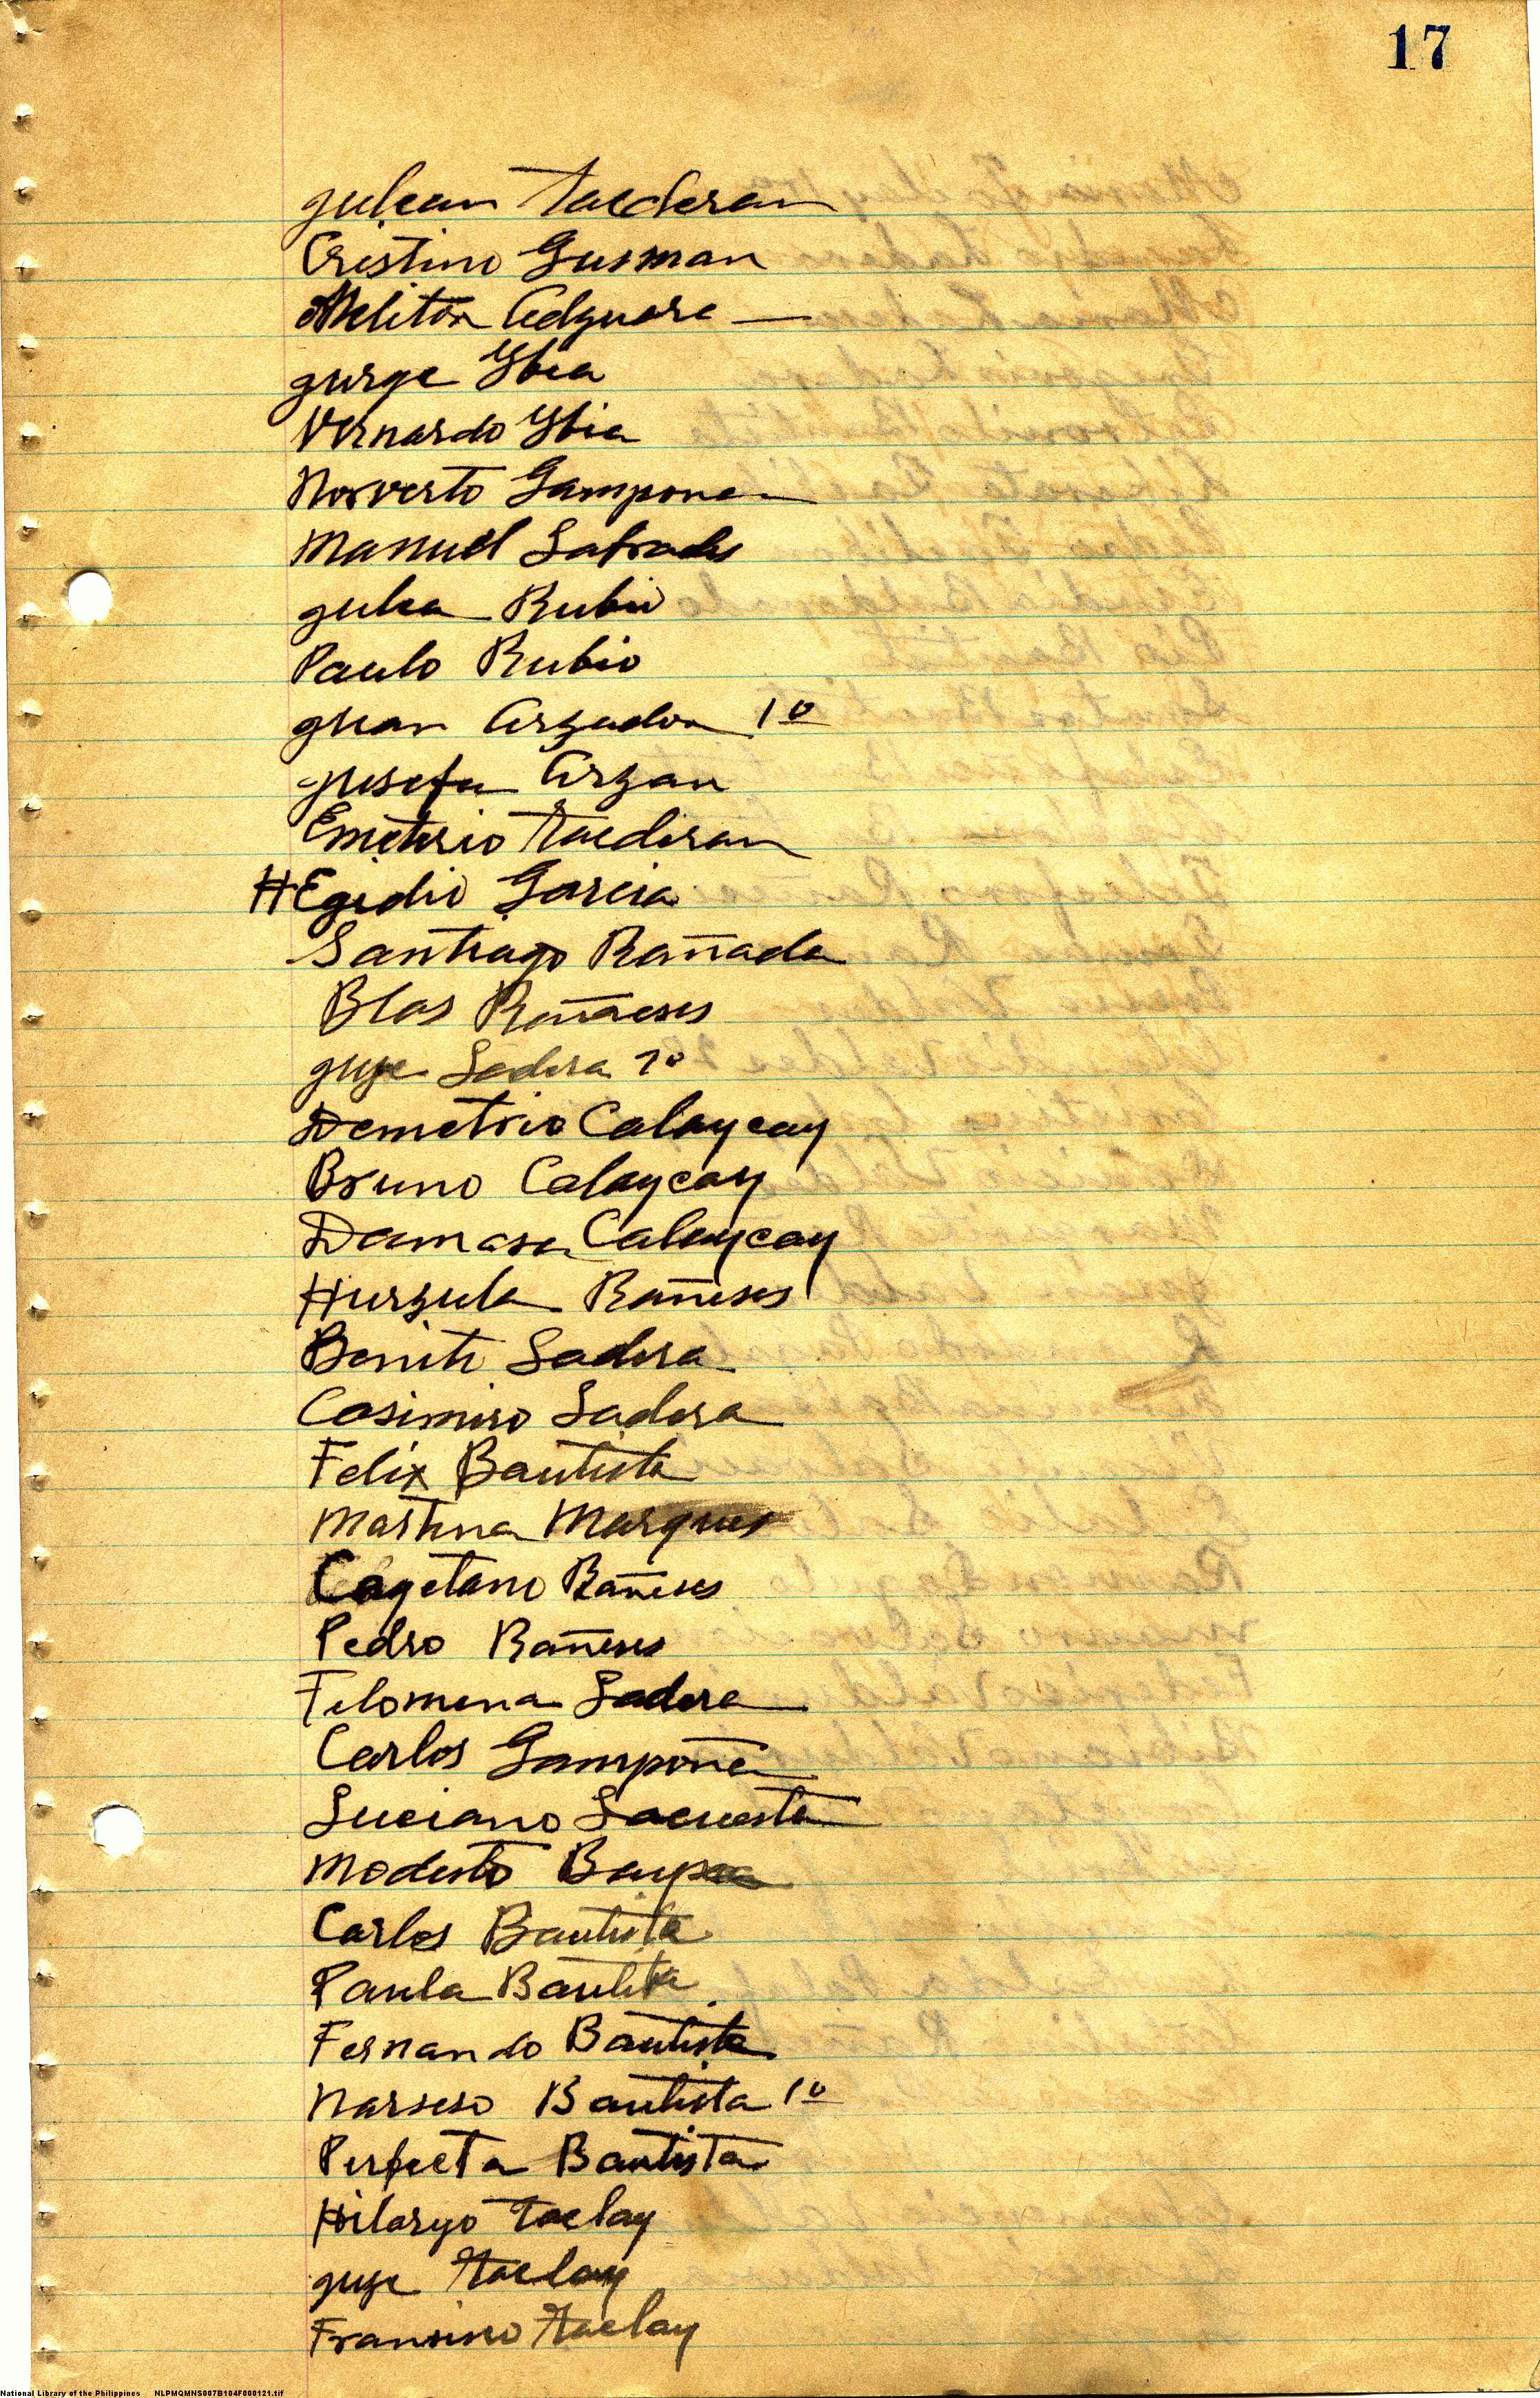 17
Julian Tacderan
Cristino Gusman
Meliton Adzuara
Jurge Ybia
Vernardo Ybia
Norverto Gamponea
Manuel Labrades
Julia Rubio
Paulo Rubio
Juan Arzadon 1º
Jusefa Arzan
Emeterio Tacderan
Egidio Garcia
Santiago Rañada
Blas Rañaeses
Juse Ladera
Demetrio Calaycay
Bruno Calaycay
Damasa Calaycay
Hurzula Rañeses
Benito Ladera
Casimiro Ladera
Felix Bautista
Martina Marques
Cayetano Rañeses
Pedro Rañeses
Felomena Ladera
Carlos Gamponia
Luciano Lacuesta
Modesto
Carlos Bautista
Paula Bautista
Fernando Bautista
Narseso Bautista 1º
Perfecta Bautista
Hilaryo Taclay
Juse Taclay
Fransisco Taclay
National Library of the Philippines NLPMQMNS007B104F000121.tif